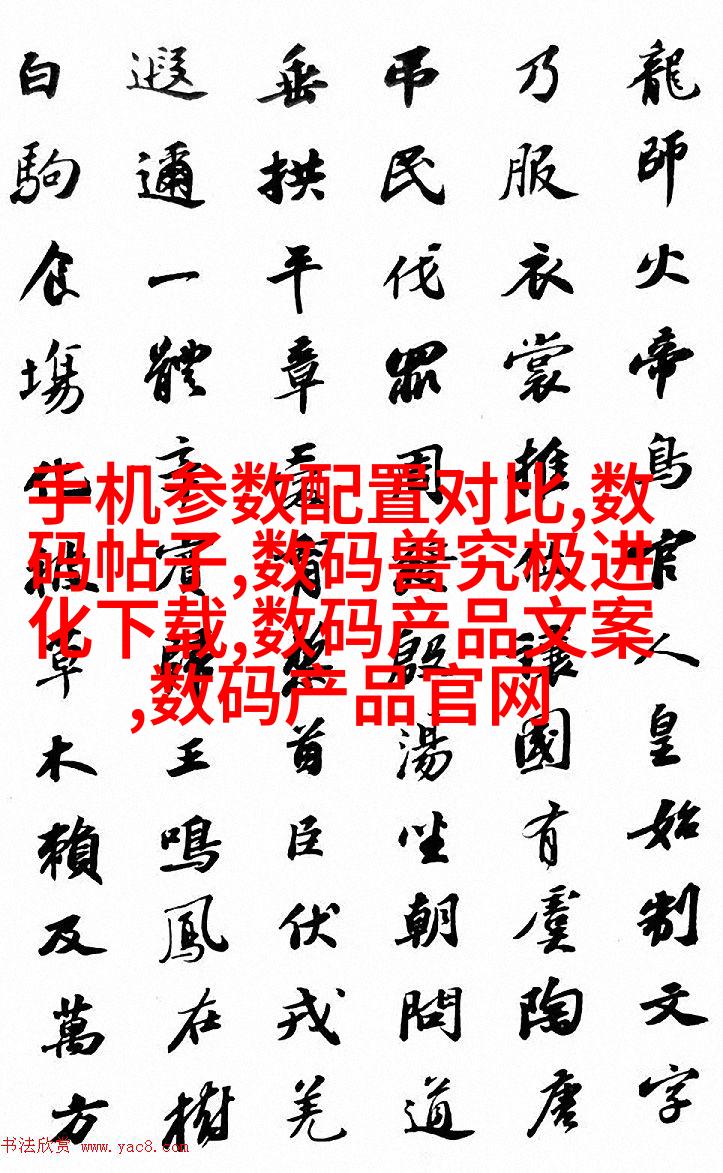 龍師火帝鳥官人皇始制文字
乃服衣裳推位讓國有虞陶唐
吊民伐罪周發殷湯坐朝問道
垂拱平章愛育黎首臣伏戎羌
遐邇一體率賓歸王鳴鳳在樹
白駒食場化被草木賴及萬方
手机参数配置对比,数
码帖子,数码兽究极进
化下载,数码产品文案
,数码产品官网
书法欣赏 www.yac8.com